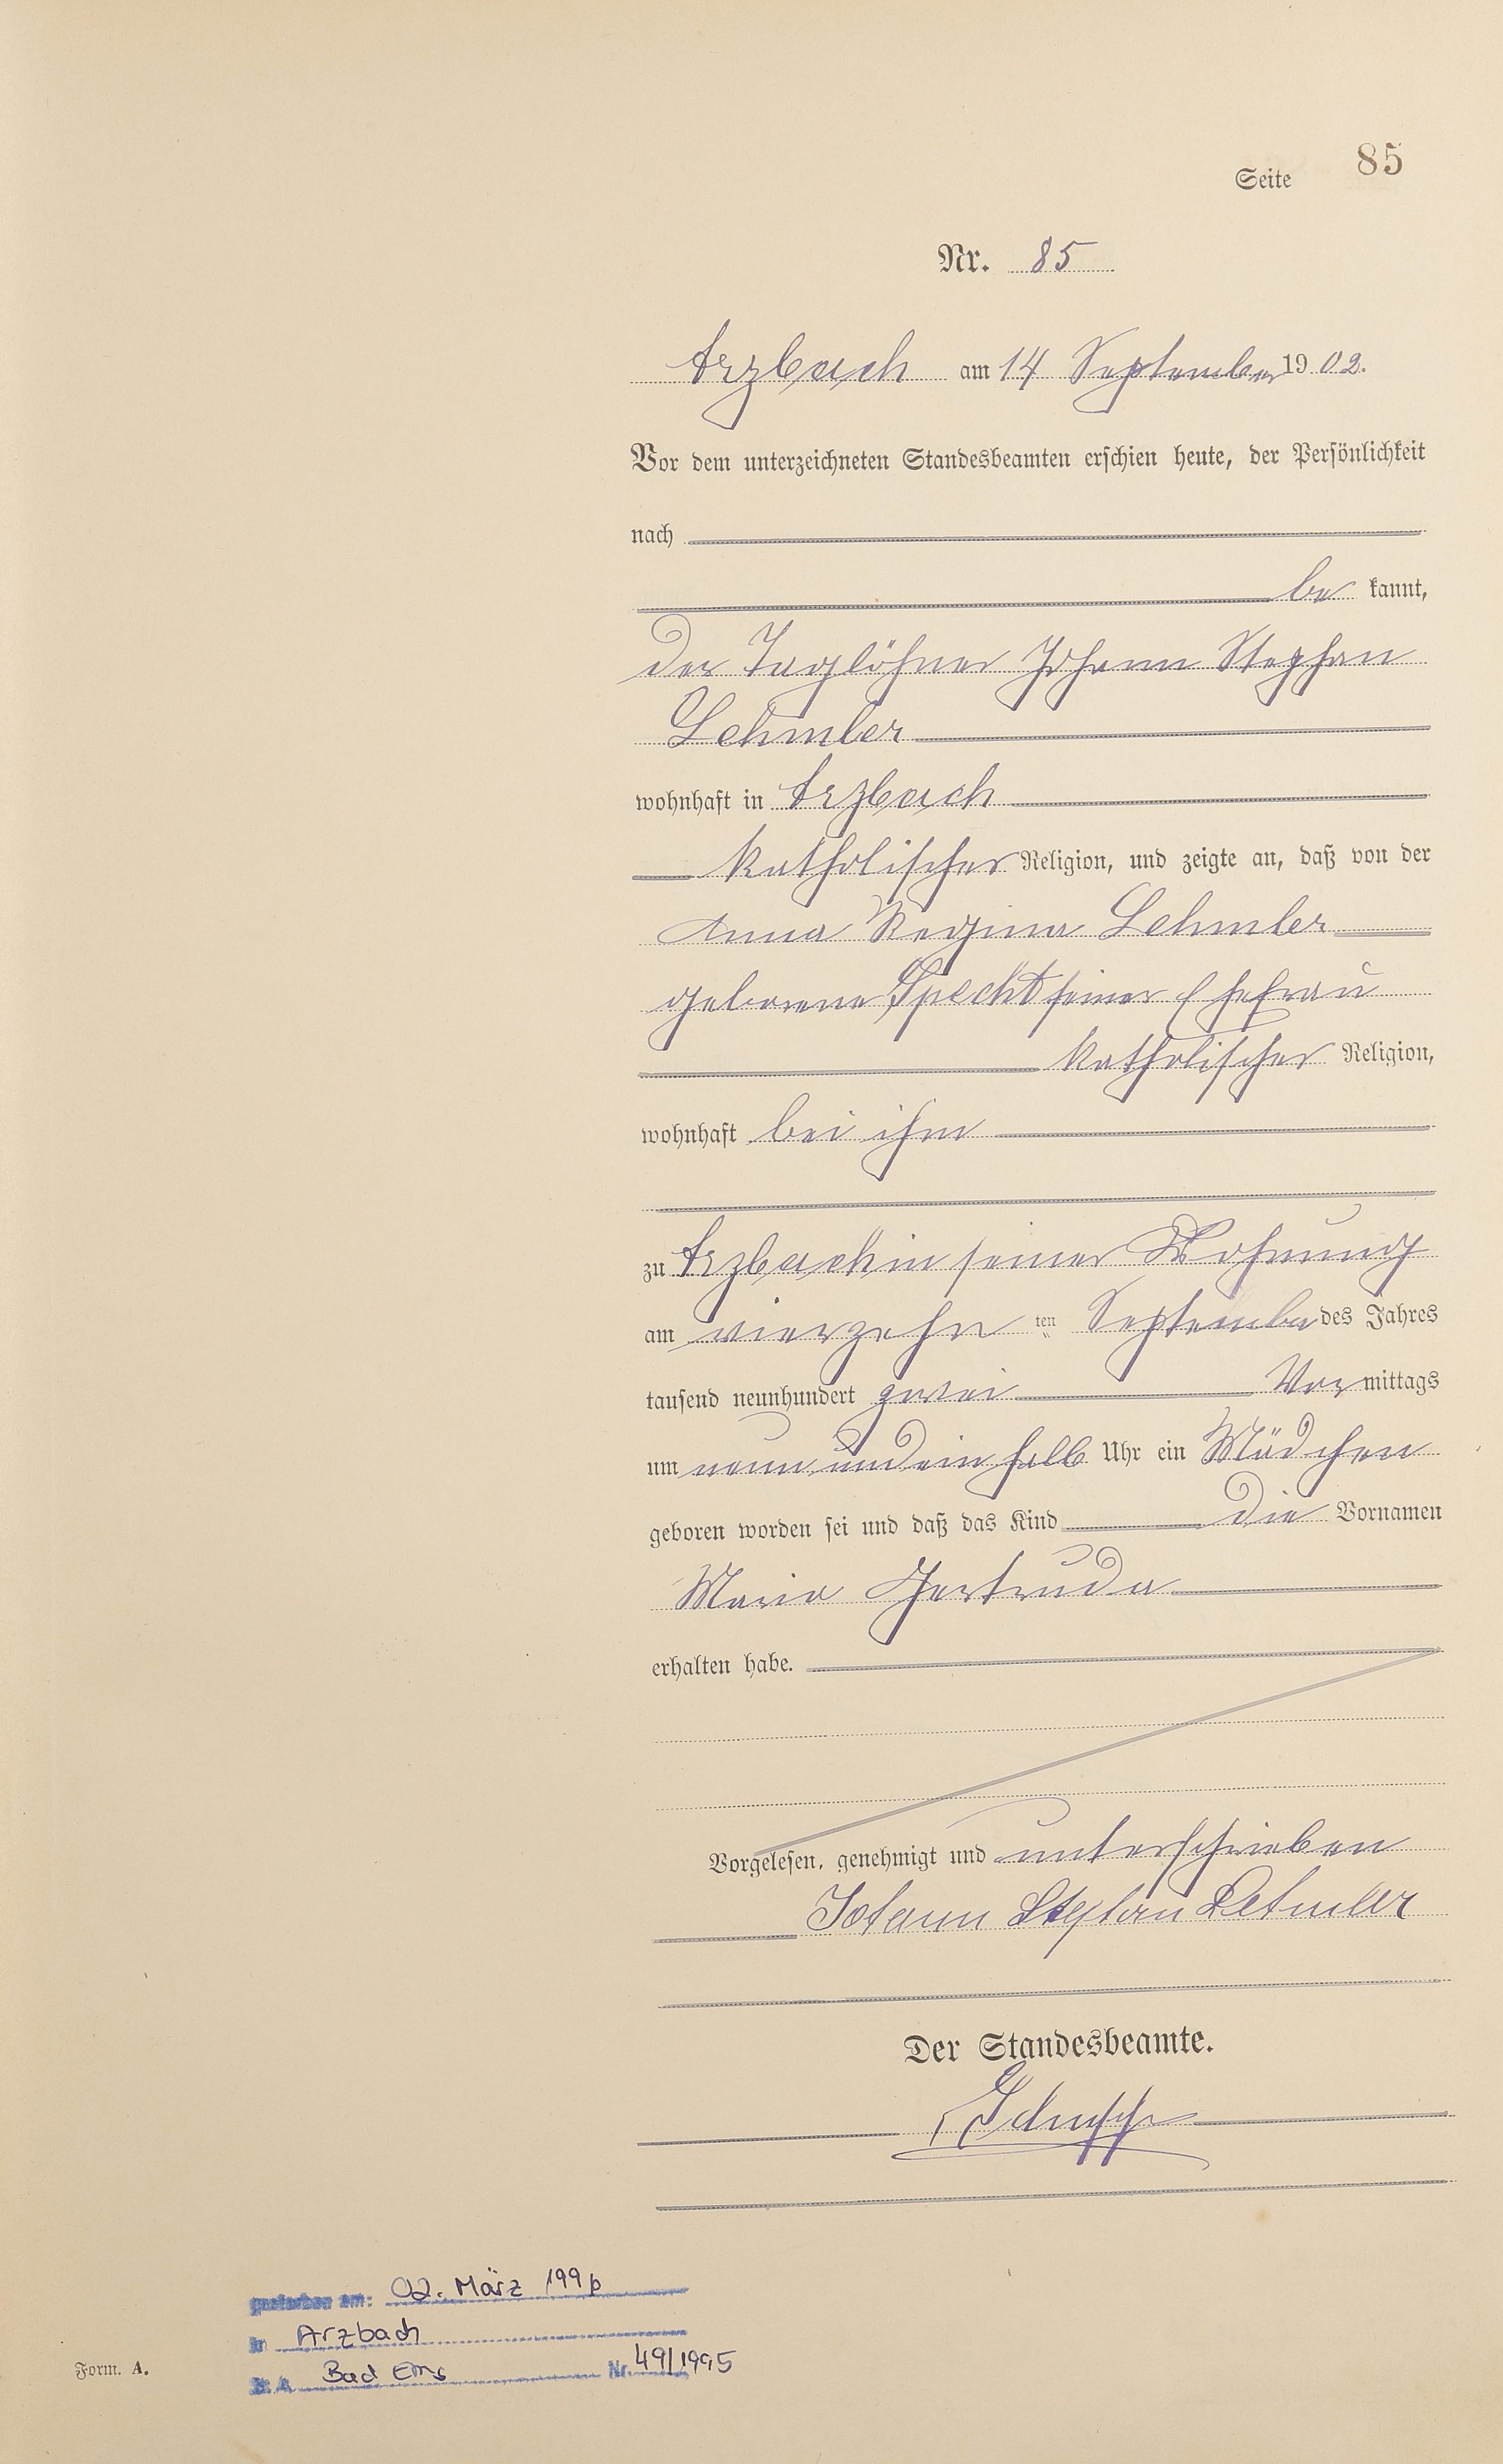 Seite 85
Nr. 85
Arzbach am 14 September 1902.
Vor dem unterzeichneten Standesbeamten erschien heute, der Persönlichkeit
nach
be kannt,
der Taglöhner Johann Stephan
Lehmler
wohnhaft in Arzbach
katholischer Religion, und zeigte an, daß von der
Anna Regina Lehmler
geborene Specht seiner Ehefrau
katholischer Religion,
wohnhaft bei ihm
zu Arzbach in seiner Wohnung
am vierzehn ten September des Jahres
tausend neunhundert zwei Vor mittags
um neun und ein halb Uhr ein Mädchen
geboren worden sei und daß das Kind die Vornamen
Maria Gertruda
erhalten habe.
Vorgelesen, genehmigt und unterschrieben
Johann Stephan Lehmler
Der Standesbeamte.
gestorben am: 02. März 1995
in Arzbach
St. A. Bad Ems Nr. 49/1995
Form. A.